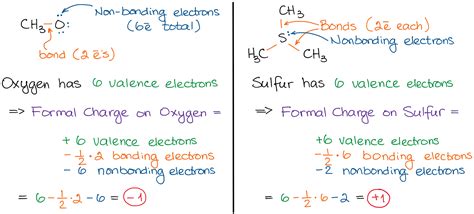 Non-bonding electrons
(6ē total)
CH₃–Ö:
bond (2 ē's)
Oxygen has 6 valence electrons
=> Formal Charge on Oxygen =
+6 valence electrons
-½·2 bonding electrons
-6 nonbonding electrons
= 6-½·2-6= -1
CH₃
Bonds (2ē each)
S:
Nonbonding electrons
H₃C
CH₃
Sulfur has 6 valence electrons
=> Formal Charge on Sulfur =
+6 valence electrons
-½·6 bonding electrons
-2 nonbonding electrons
= 6-½·6-2= +1